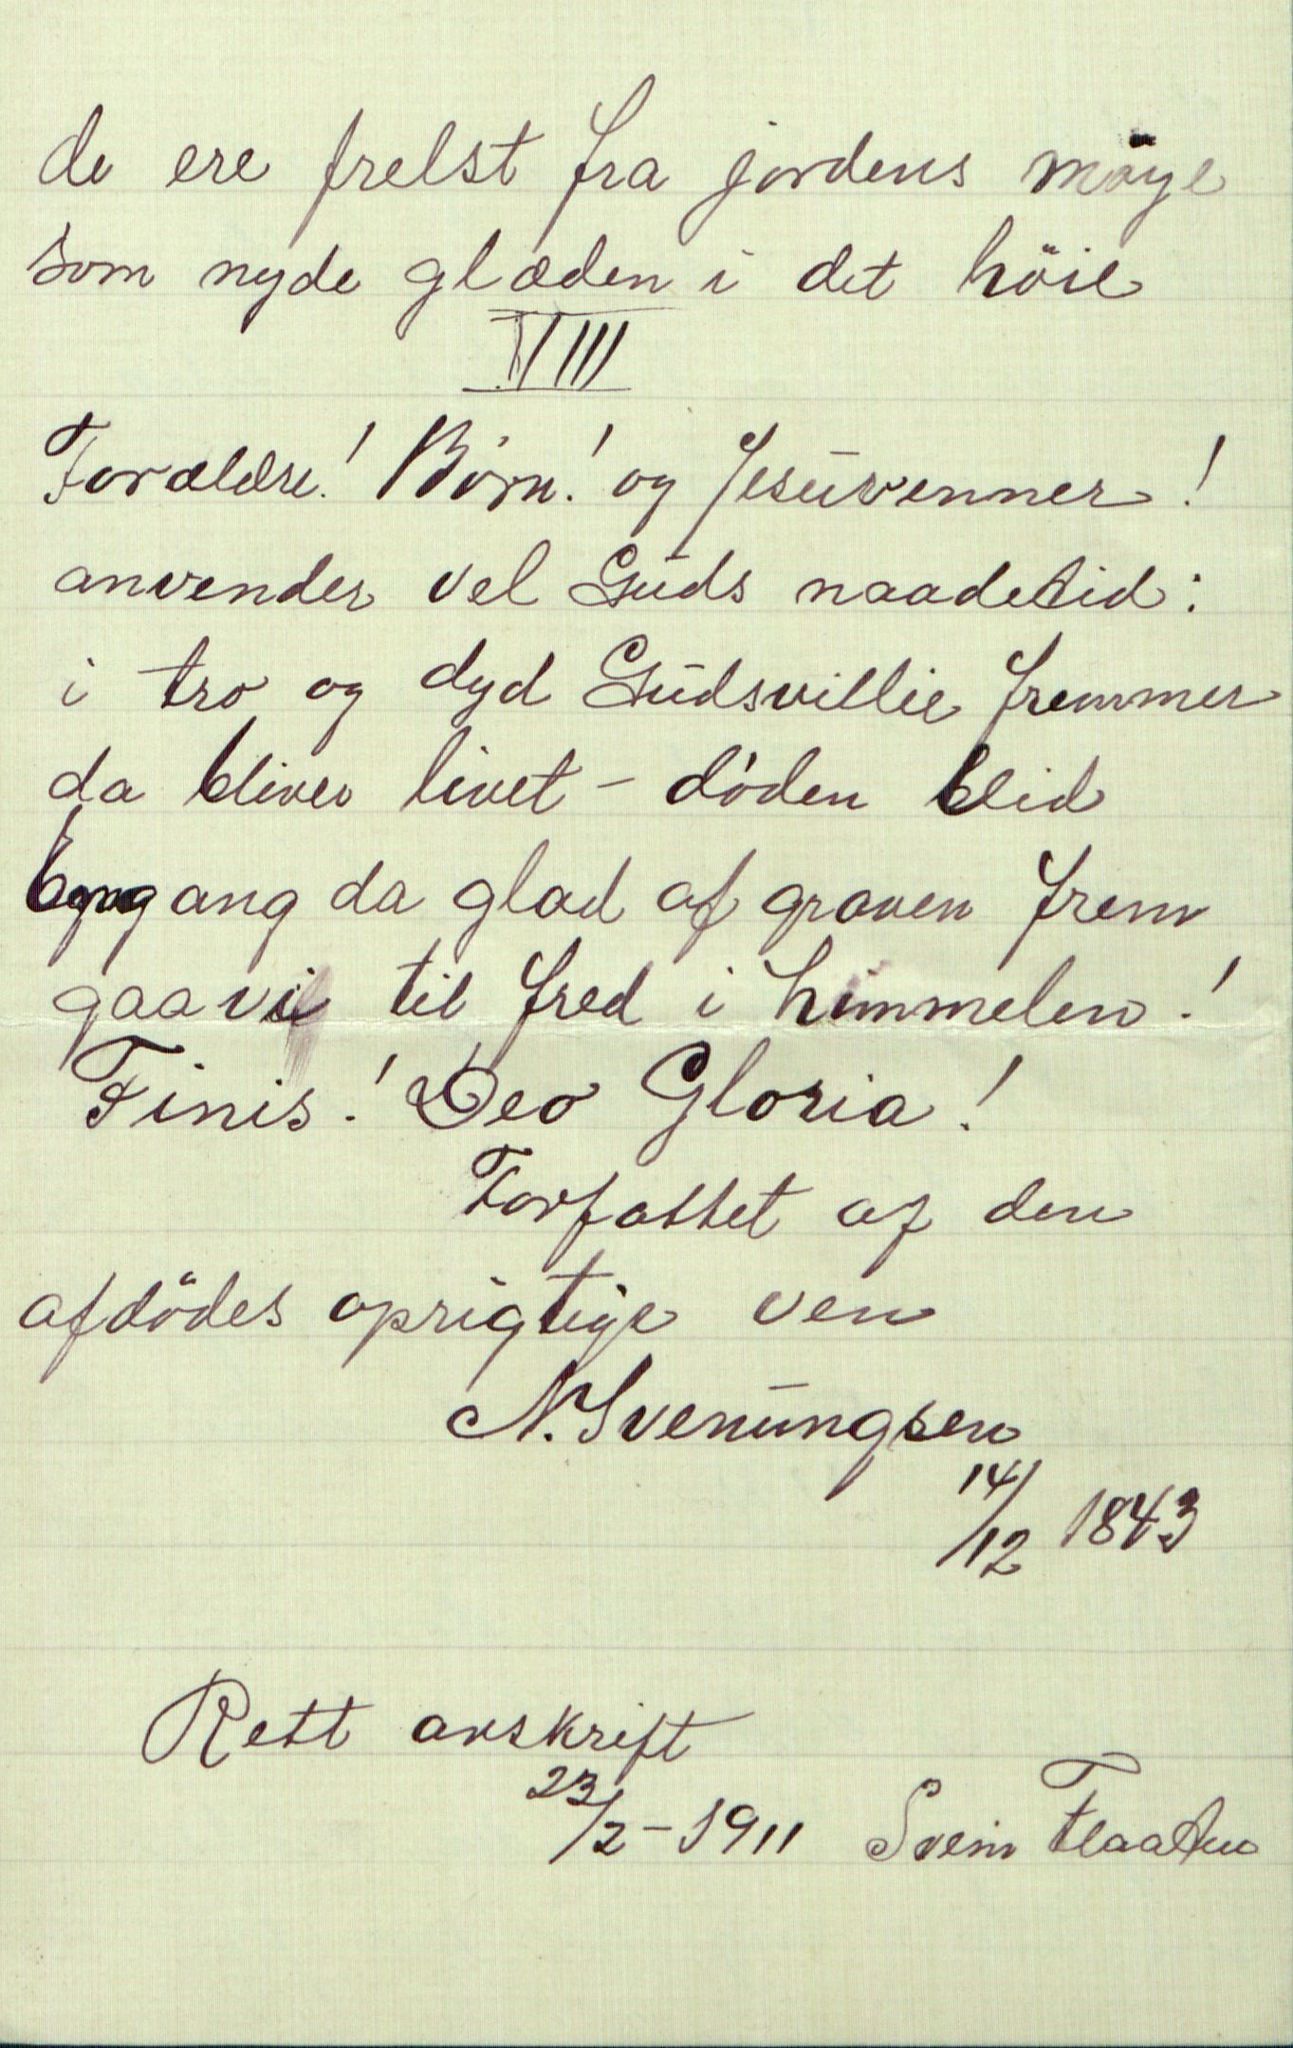 de ere frelst fra jordens möye
som nyde glæden i det höie
VIII
Forældre! Børn! og Jesuvenner!
anvender vel Guds naadetid:
i tro og dyd Gudsvillie fremmer
da bliver livet - døden blid
Engang da glad af graven frem
gaa vi til fred i himmelen!
Finis! Deo Gloria!
Forfattet af den
afdödes oprigtige ven
N. Svenungsen
14/12 1843
Rett avskrift
23/2 - 1911 Svein Flaaten